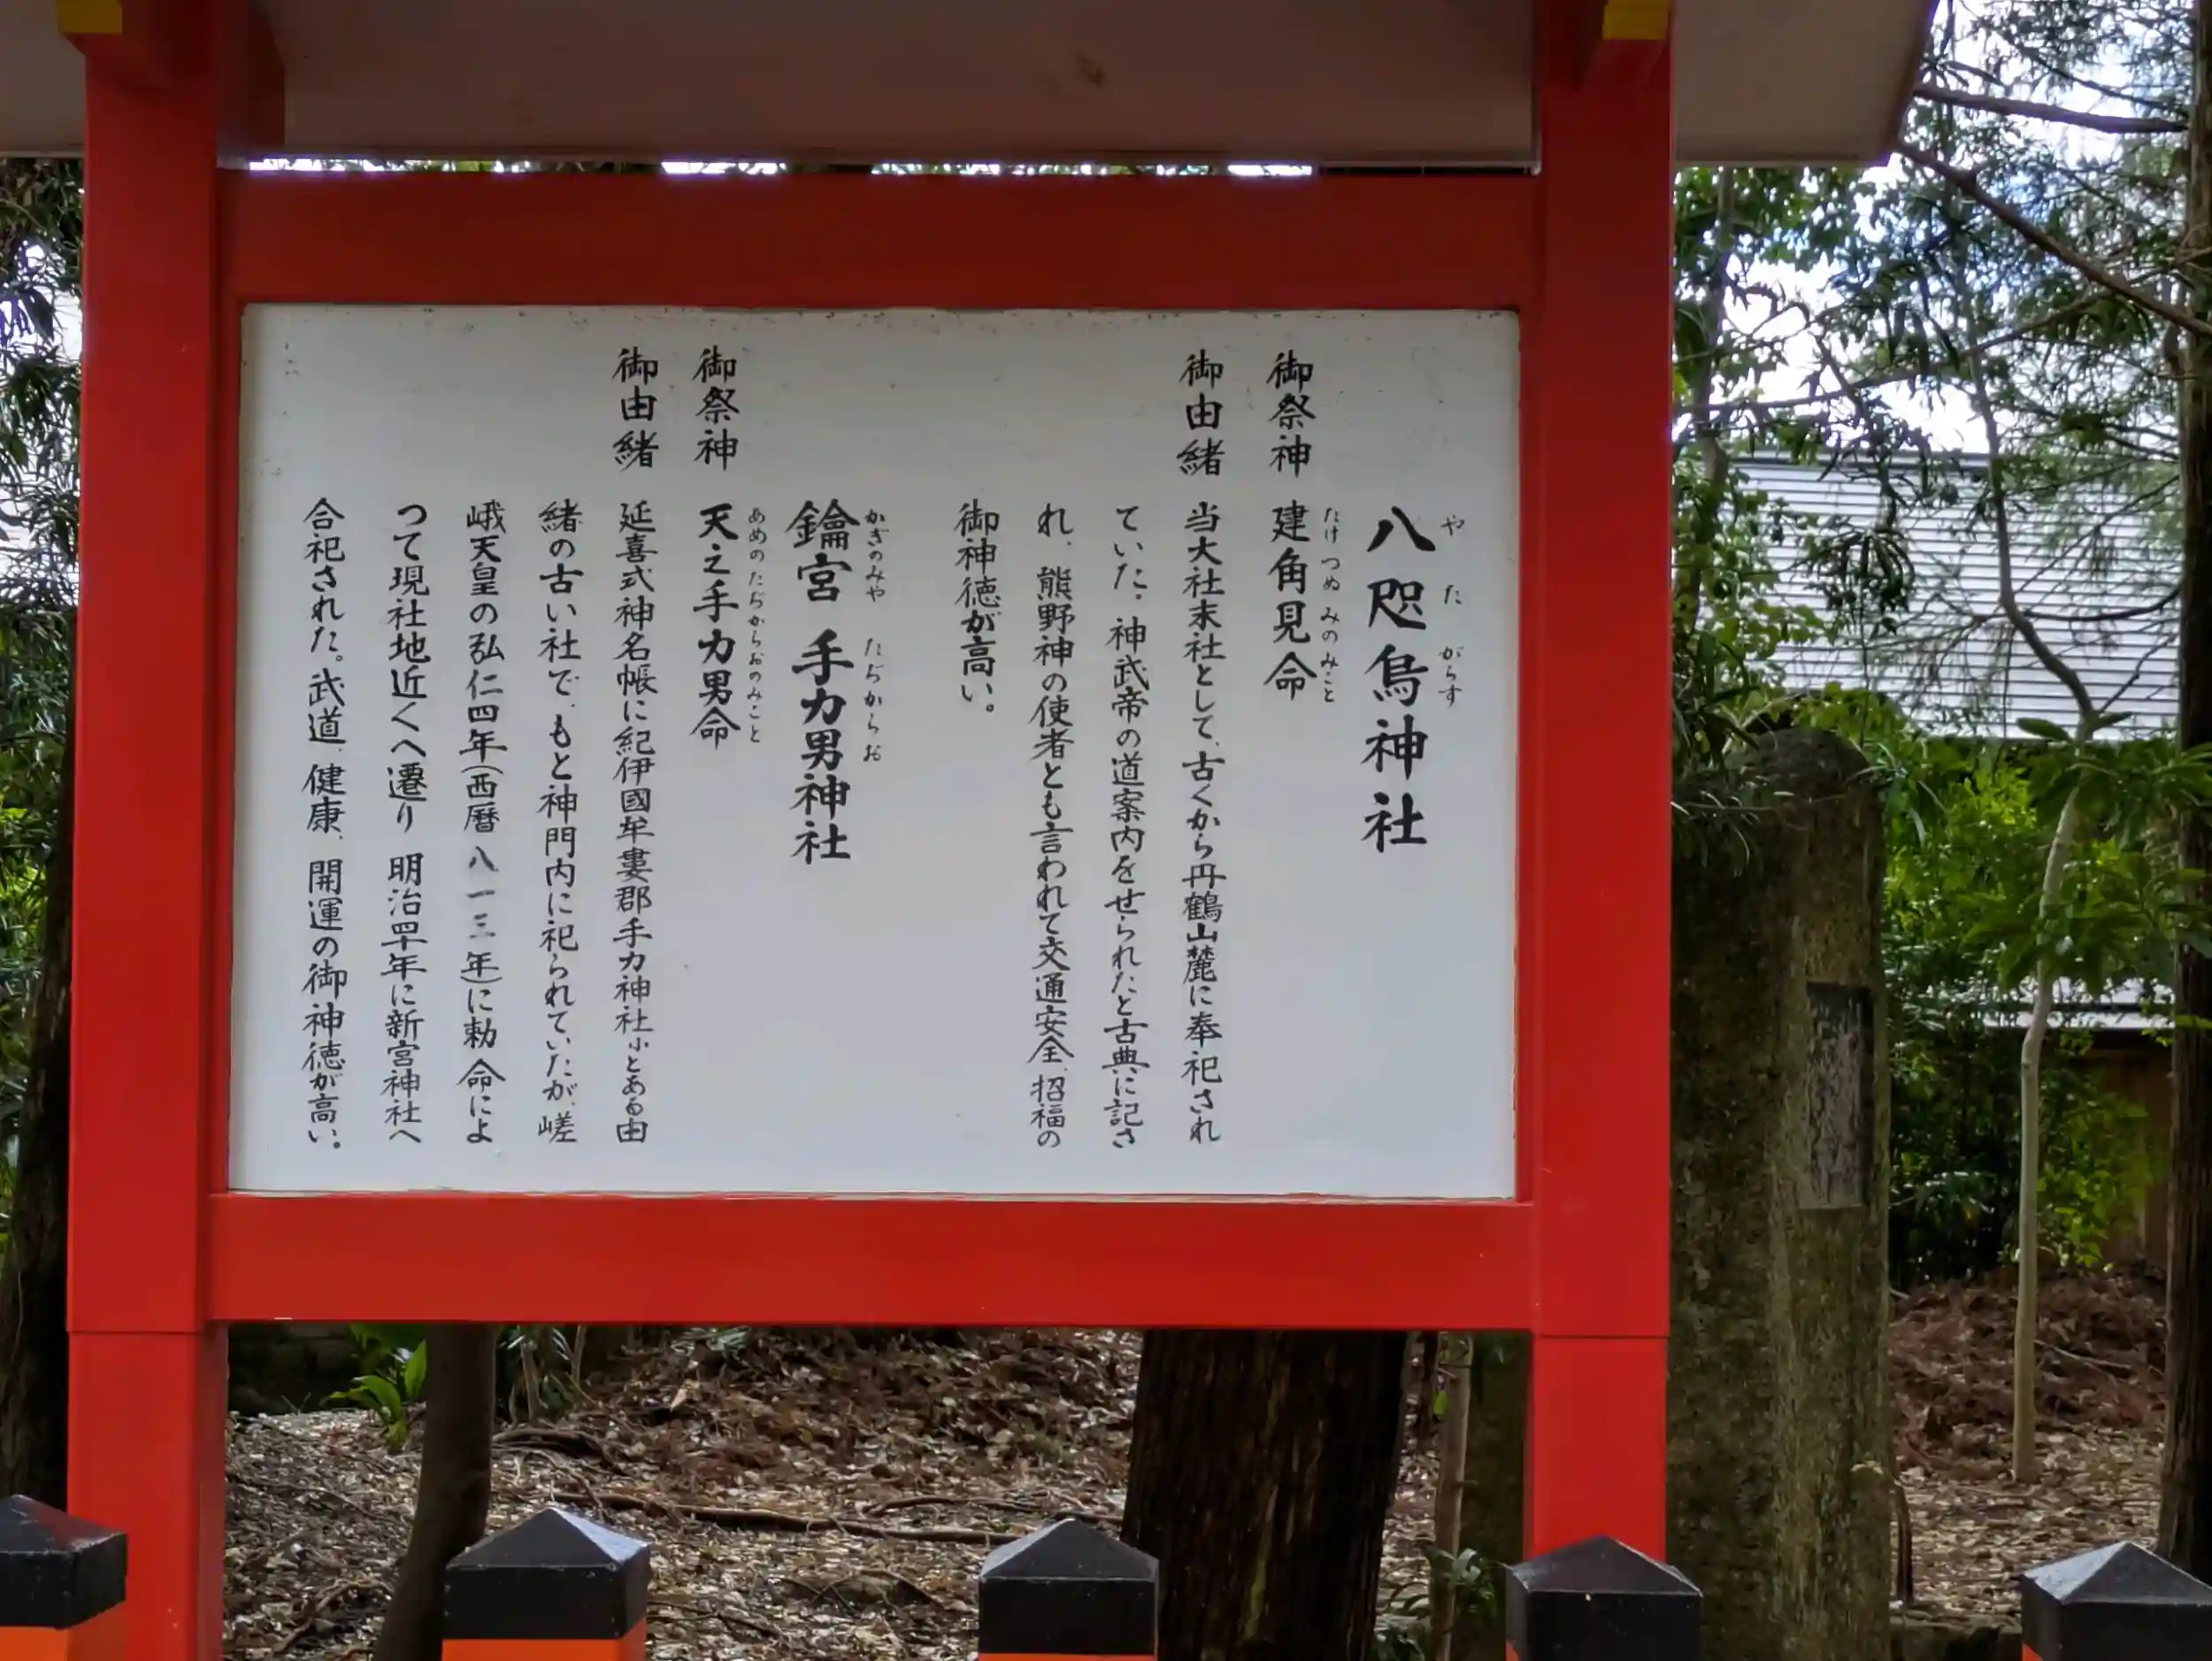 八咫烏神社
やたがらす
御祭神 建角見命
たけつぬみのみこと
御由緒 当大社末社として、古くから丹鶴山麓に奉祀され
ていた。神武帝の道案内をせられたと古典に記さ
れ、熊野神の使者とも言われて交通安全、招福の
御神徳が高い。
鑰宮 手力男神社
かぎのみや たぢからお
御祭神 天之手力男命
あめのたぢからおのみこと
御由緒 延喜式神名帳に紀伊國牟婁郡手力神社小とある由
緒の古い社で、もと神門内に祀られていたが、嵯
峨天皇の弘仁四年(西暦八一三年)に勅命によ
つて現社地近くへ遷り 明治四十年に新宮神社へ
合祀された。武道、健康、開運の御神徳が高い。